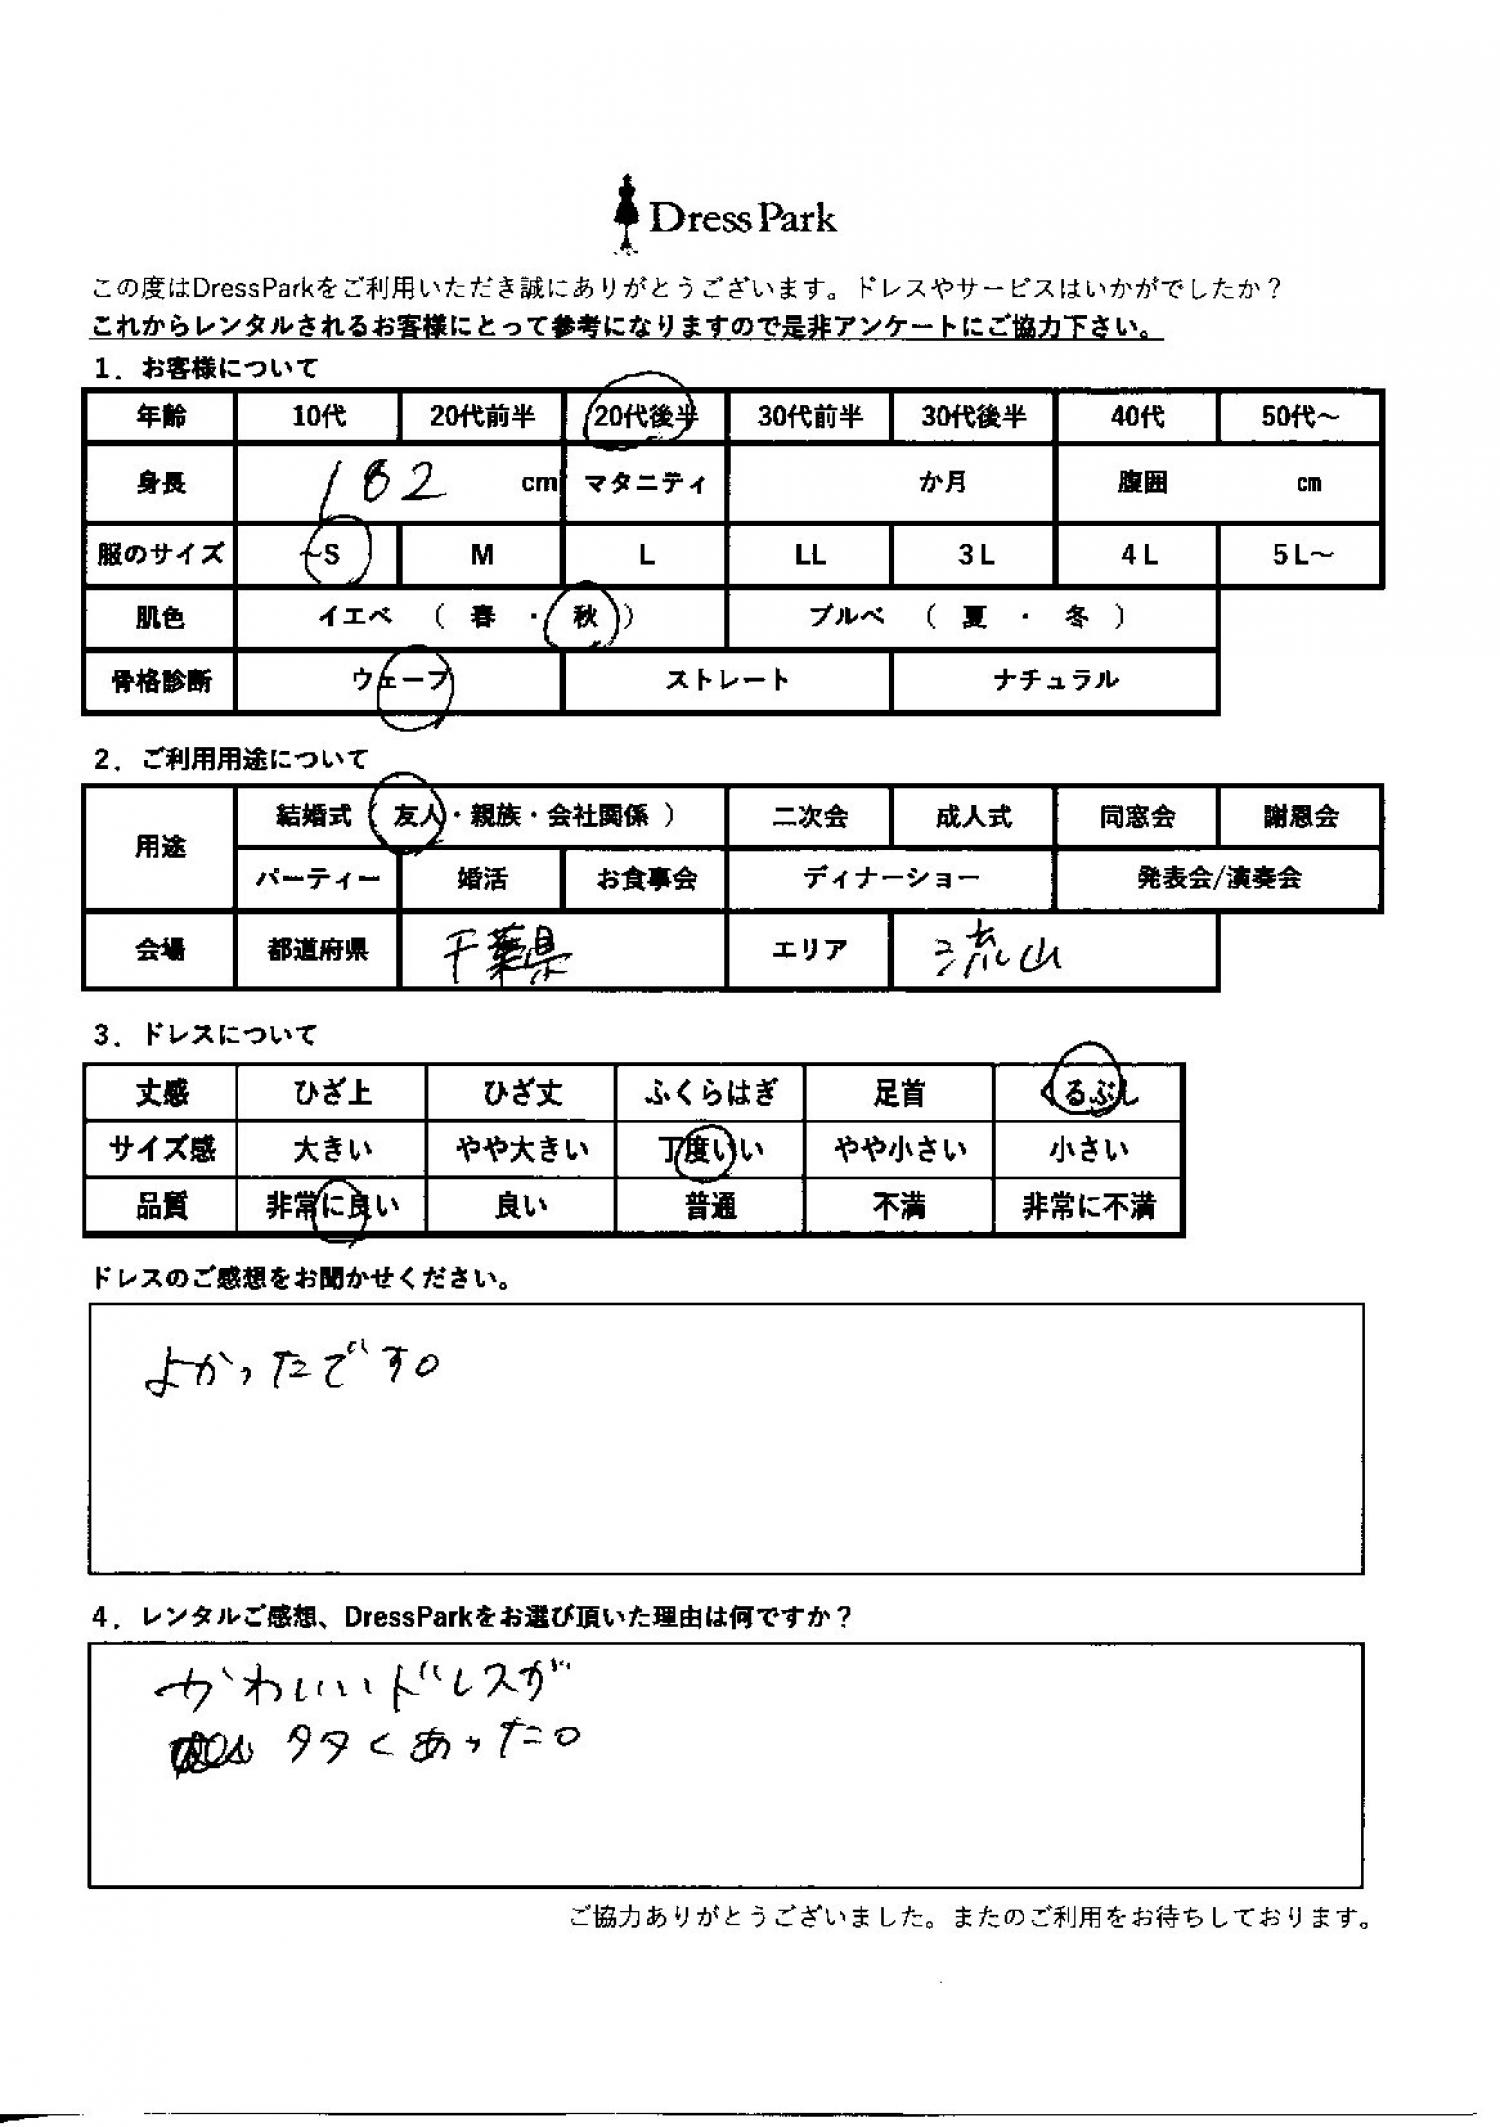 Dress Park
この度はDressParkをご利用いただき誠にありがとうございます。ドレスやサービスはいかがでしたか？
これからレンタルされるお客様にとって参考になりますので是非アンケートにご協力下さい。
1．お客様について
年齢 10代 20代前半 20代後半 30代前半 30代後半 40代 50代～
身長 162 cm マタニティ か月 腹囲 cm
服のサイズ ～S M L LL 3L 4L 5L～
肌色 イエベ （ 春 ・ 秋 ） ブルベ （ 夏 ・ 冬 ）
骨格診断 ウェーブ ストレート ナチュラル
2．ご利用用途について
用途 結婚式（ 友人・親族・会社関係 ） 二次会 成人式 同窓会 謝恩会
パーティー 婚活 お食事会 ディナーショー 発表会/演奏会
会場 都道府県 千葉県 エリア 流山
3．ドレスについて
丈感 ひざ上 ひざ丈 ふくらはぎ 足首 くるぶし
サイズ感 大きい やや大きい 丁度いい やや小さい 小さい
品質 非常に良い 良い 普通 不満 非常に不満
ドレスのご感想をお聞かせください。
よかったです。
4．レンタルご感想、DressParkをお選び頂いた理由は何ですか？
かわいいドレスが
多くあった。
ご協力ありがとうございました。またのご利用をお待ちしております。